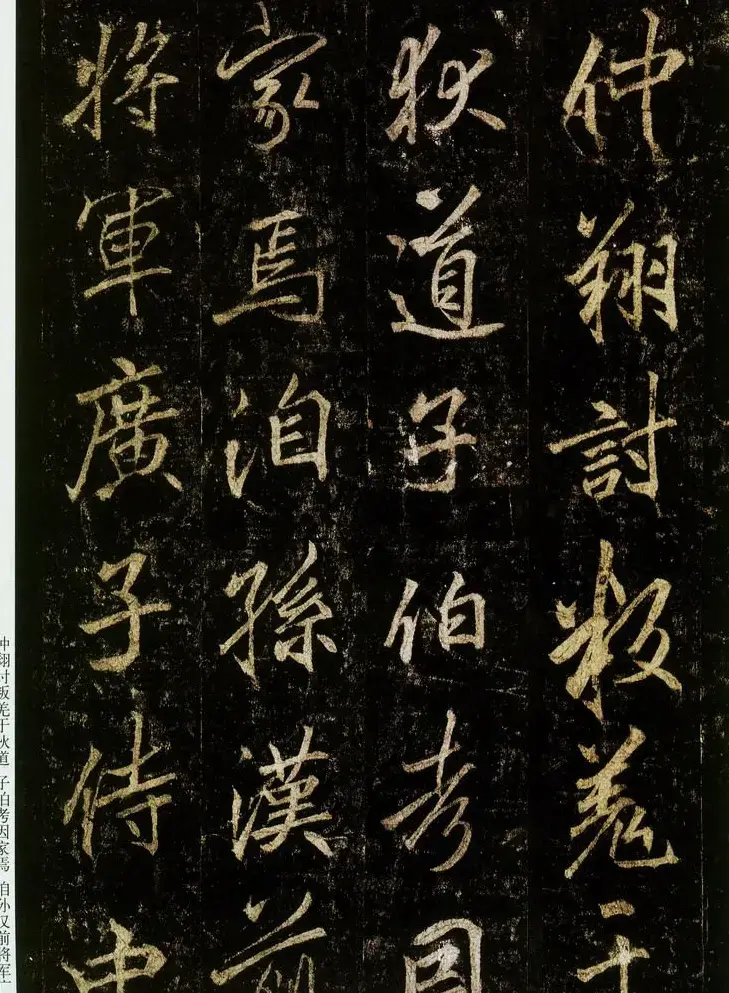 仲翔討叛羌于
狄道子伯考因
家焉洎孫漢前
將軍廣子侍中
仲翔讨叛羌于狄道 子伯考因家焉 洎孙汉前将军广